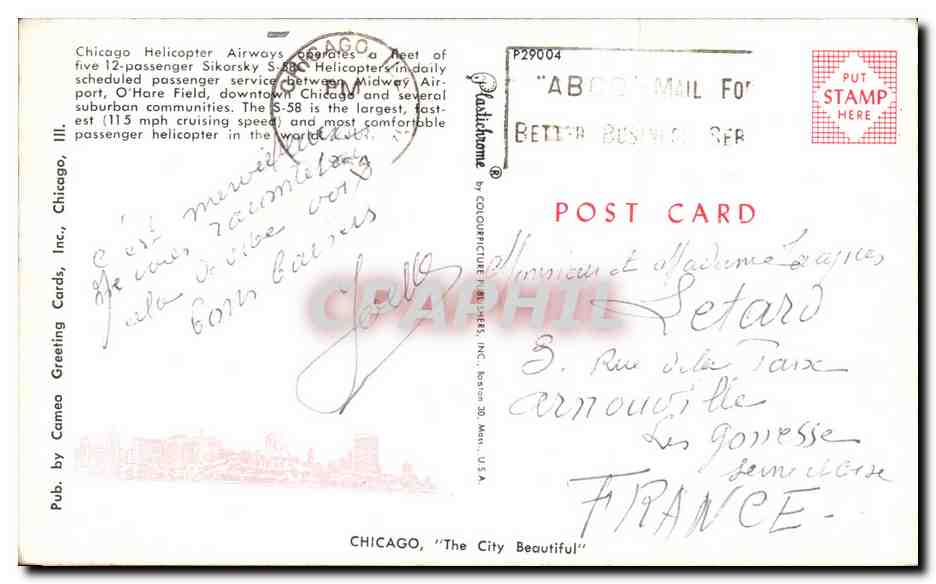 Chicago Helicopter Airways operates a fleet of
five 12-passenger Sikorsky S-58C Helicopters in daily
scheduled passenger service between Midway Air-
port, O'Hare Field, downtown Chicago and several
suburban communities. The S-58 is the largest, fast-
est (115 mph cruising speed) and most comfortable
passenger helicopter in the world.
CHICAGO, ILL
PM
P29004
"ABCD" MAIL FOR
BETTER BUSINESS SER
PUT
STAMP
HERE
POST CARD
c'est merveilleux
Je vous raconterai
cela de vive voix
bons baisers
Joëlle
Monsieur et Madame Jacques
Letard
3. Rue de la Paix
Arnouville
Les gonesse
seine et oise
FRANCE-
Pub. by Cameo Greeting Cards, Inc., Chicago, Ill.
Plastichrome ® by COLOURPICTURE PUBLISHERS, INC., Boston 30, Mass., U.S.A.
CPAPHIL
CHICAGO, "The City Beautiful"